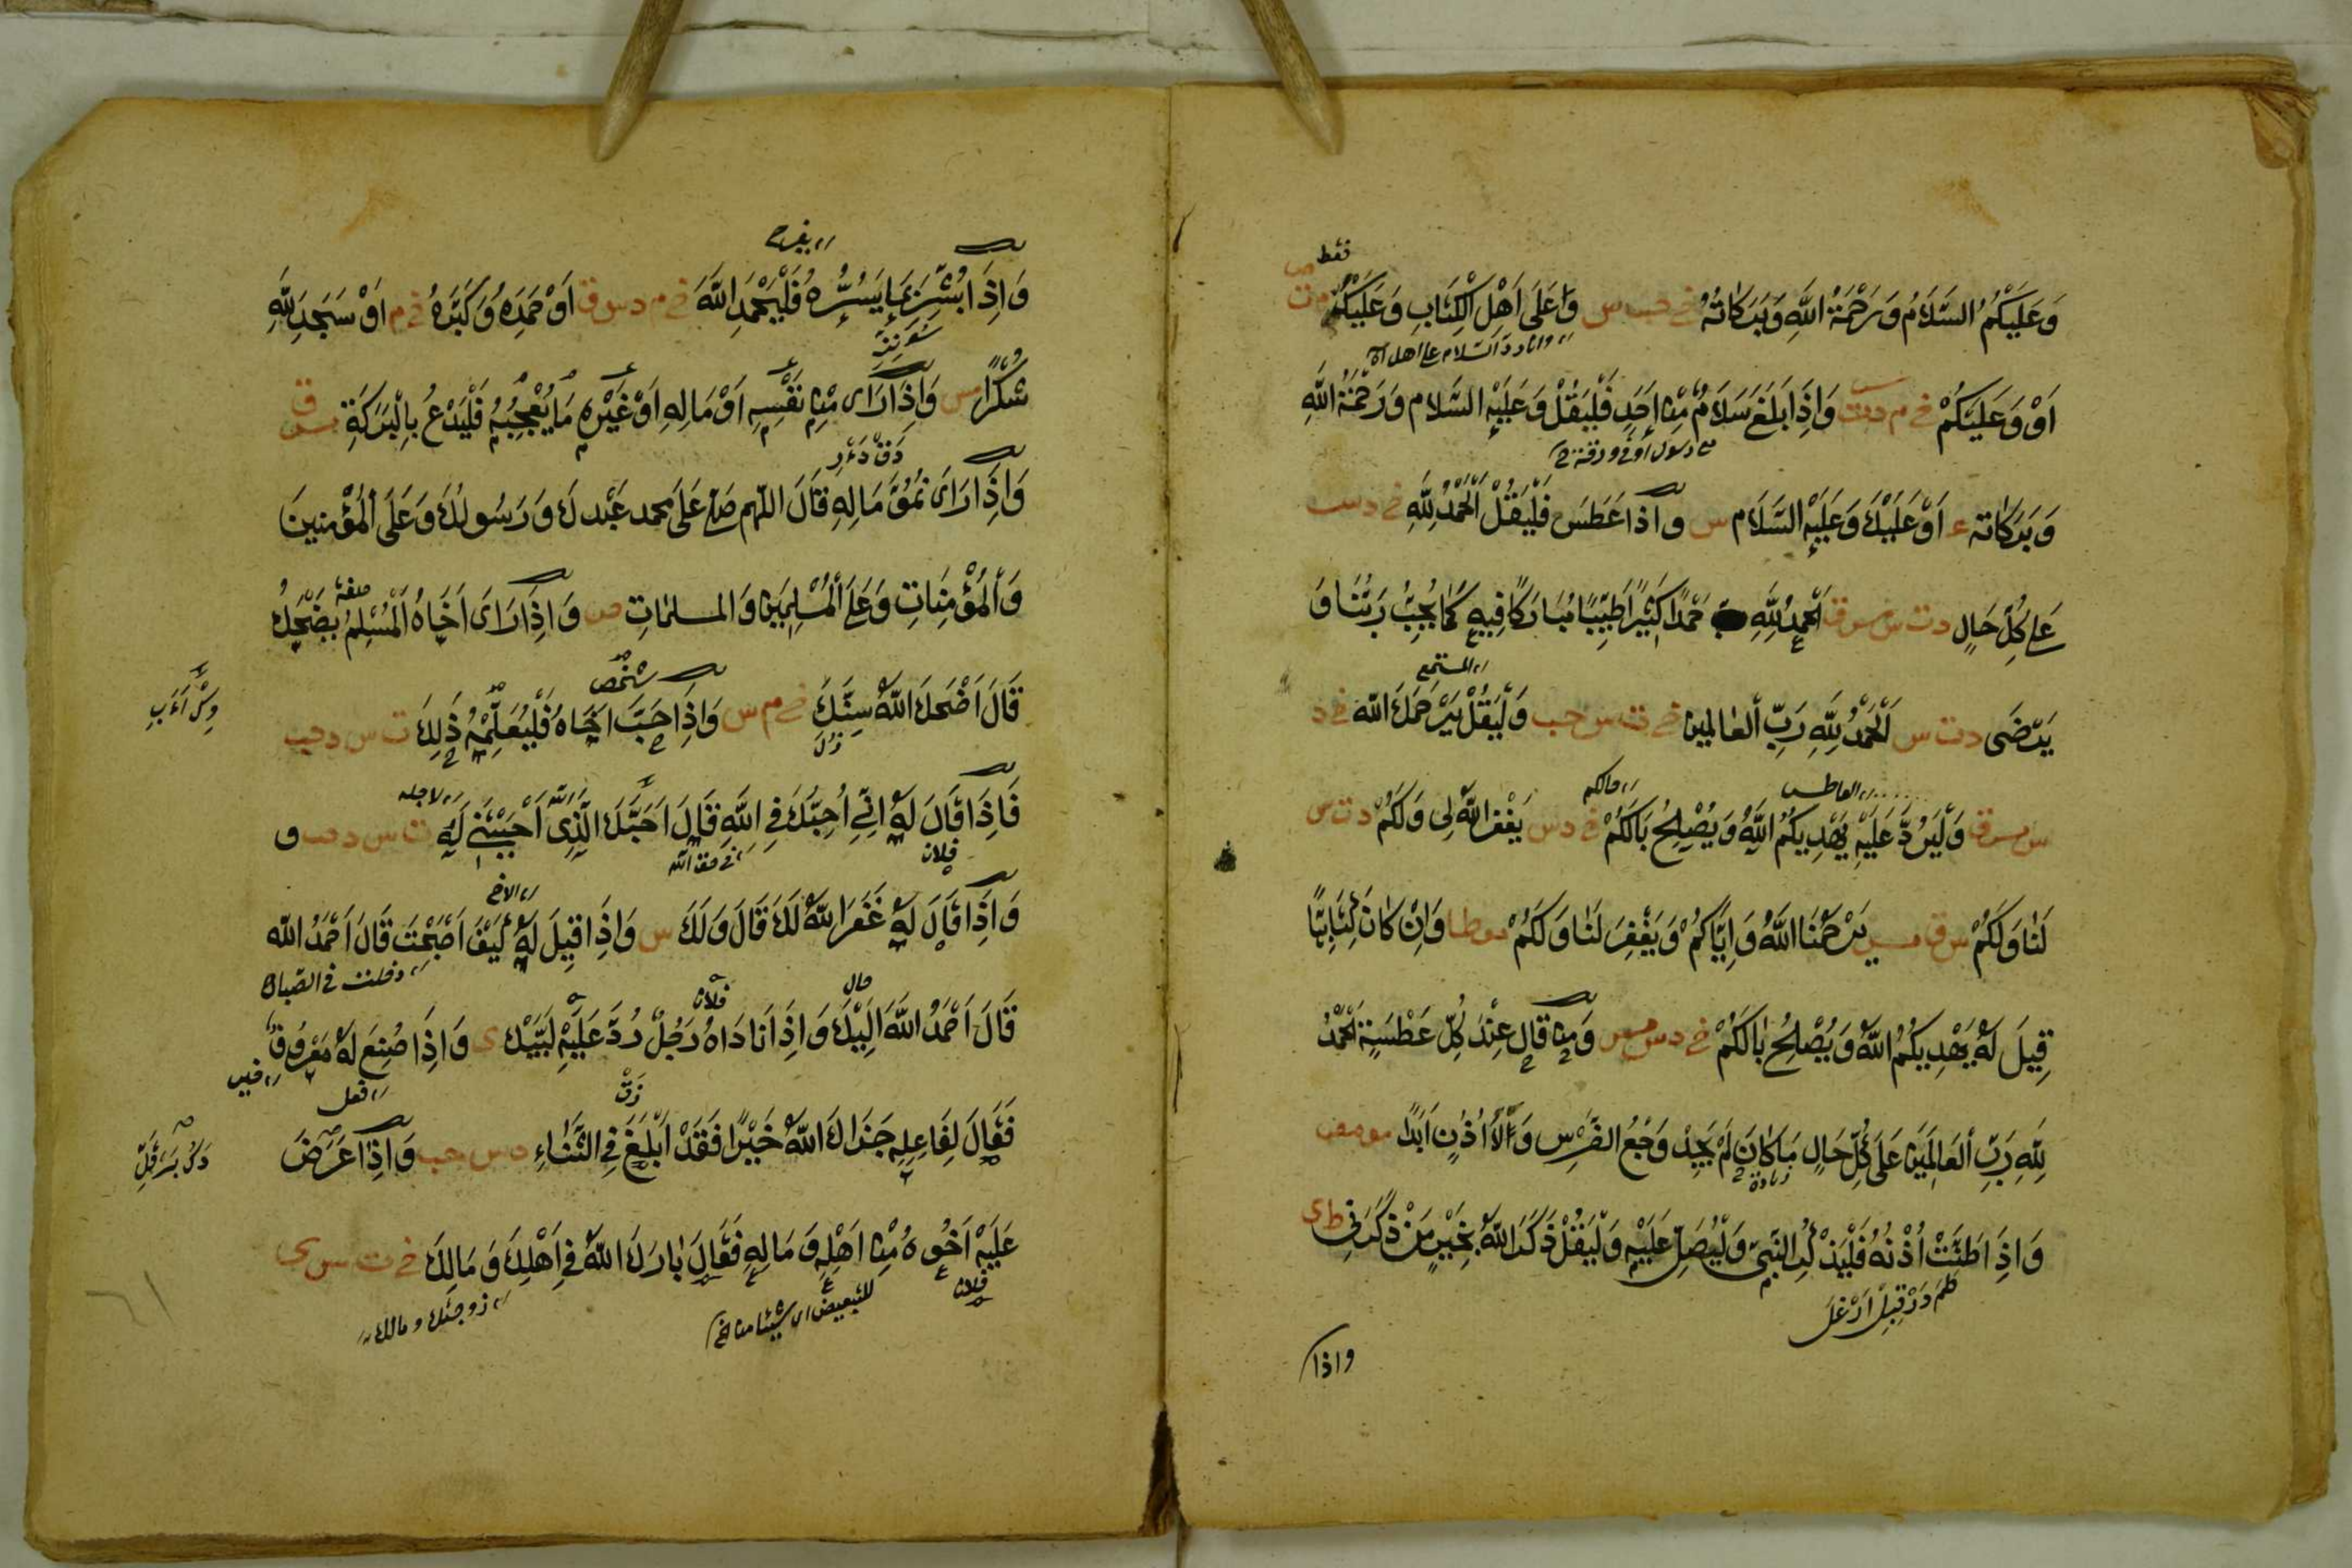 فقط
وَعَلَيْكُمُ السَّلَامُ وَرَحْمَةُ اللَّهِ وَبَرَكَاتُهُ خ حب س وَاعَلَى اَهْلِ الْكِتَابِ وَعَلَيْكُمْ م ت س
اَوْ وَعَلَيْكُمْ خ م د ت س وَاِذَا بَلَغَ سَلَامٌ مِنْ اَحَدٍ فَلْيَقُلْ وَعَلَيْهِ السَّلَام وَرَحْمَةُ اللَّهِ
وَبَرَكَاته ع اَوْ عَلَيْكَ وَعَلَيْهِ السَّلَام س واذا عَطَسَ فَلْيَقُلْ اَلْحَمْدُ لِلَّهِ خ د س
عَلٰى كُلِّ حَالٍ د ت س مس ق اَلْحَمْدُ لِلَّهِ حَمْدًا كَثِيْرًا طَيِّبًا مُبَارَكًا فِيهِ كَمَا يُحِبُّ رَبُّنَا وَ
المستمع
يَرْضَى د ت س اَلْحَمْدُ لِلَّهِ رَبِّ الْعَالَمِين خ ت س حب وَلْيَقُلْ يَرْحَمُكَ اللّٰه خ د
العاطس حالكم
س مس ق وَلْيَرُدَّ عَلَيْهِ يَهْدِيكُمُ اللَّهُ وَيُصْلِحُ بَالَكُمْ خ د س يَغْفِرُ اللّٰهُ لِى وَلَكُمْ د ت س
لَنَا وَلَكُمْ س ق مس يَرْحَمُنَا اللَّهُ وَاِيَّاكُمْ وَيَغْفِرُ لَنَا وَلَكُمْ مو طا وَاِنْ كَانَ كِتَابِيًّا
قِيلَ لَهُ يَهْدِيكُمُ اللّٰهُ وَيُصْلِحُ بَالَكُمْ خ د س مس وَمَنْ قَالَ عِنْدَ كُلِّ عَطْسَةٍ اَلْحَمْدُ
لِلَّهِ رَبِّ الْعَالَمِيْنَ عَلَى كُلِّ حَالٍ مَا كَانَ لَمْ يَجِدْ وَجَعَ الضِّرْسِ وَلَا اُذُنٍ اَبَدًا مو مص
وَاِذَا طَنَّتْ اُذُنُهُ فَلْيَذْكُرِ النَّبِىَّ وَلْيُصَلِّ عَلَيْهِ وَلْيَقُلْ ذَكَرَ اللّٰهُ بِخَيْرٍ مَنْ ذَكَرَنِى ط ى
واذا
يفرح
وَاِذَا بُشِّرَ بِمَا يَسُرُّهُ فَلْيَحْمَدِ اللّٰهَ خ م د س ق اَوْ حَمِدَهُ وَكَبَّرَهُ خ م اَوْ سَجَدَ لِلّٰهِ
شُكْرًا مس وَاِذَا رَاٰى مِنْ نَفْسِهِ اَوْ مَالِهِ اَوْ غَيْرِهِ مَا يُعْجِبُهُ فَلْيَدْعُ بِالْبَرَكَةِ س ق
وَاِذَا رَاَى نُمُوَّ مَالِهِ قَالَ اللّٰهم صَلِّ عَلٰى محمد عَبْدِكَ وَرَسُولِكَ وَعَلَى الْمُؤْمِنِينَ
صفة
وَالْمُؤْمِنَاتِ وَعَلَى الْمُسْلِمِيْنَ وَالمسلمَاتِ ص وَاِذَا رَاَى اَخَاهُ الْمُسْلِمَ يَضْحَكُ
شخص
قَالَ اَضْحَكَ اللّٰهُ سِنَّكَ خ م س وَاِذَا حَبَّ اَخَاهُ فَلْيُعَلِّمْهُ ذٰلِكَ ت س د حب
لاجله
فَاِذَا قَالَ لَهُ اِنِّى اُحِبُّكَ فِى اللّٰهِ قَالَ اَحَبَّكَ الَّذِى اَحْبَبْتَنِى لَهُ ت س د حب و
فلان فى حق الله
الاخ
وَاِذَا قَالَ لَهُ غَفَرَ اللّٰهُ لَكَ قَالَ وَلَكَ س وَاِذَا قِيلَ لَهُ كَيْفَ اَصْبَحْتَ قَالَ اَحْمَدُ اللّٰه
دخلت فى الصباح
قَالَ اَحْمَدُ اللّٰهَ اِلَيْكَ وَاِذَا نَادَاهُ رَجُلٌ رَدَّ عَلَيْهِ لَبَّيْكَ ى وَاِذَا صُنِعَ لَهُ مَعْرُوف
فعل خير
فَقَالَ لِفَاعِلِهِ جَزَاكَ اللّٰهُ خَيْرًا فَقَدْ اَبْلَغَ فِى الثَّنَاءِ د س حب وَاِذَا عَرَضَ
عَلَيْهِ اَخُوهُ مِنْ اَهْلِهِ وَمَالِهِ فَقَالَ بَارَكَ اللّٰهُ فِى اَهْلِكَ وَمَالِكَ خ ت س ى
فلان للتبعيض اى شيئا من زوجتك ومالك